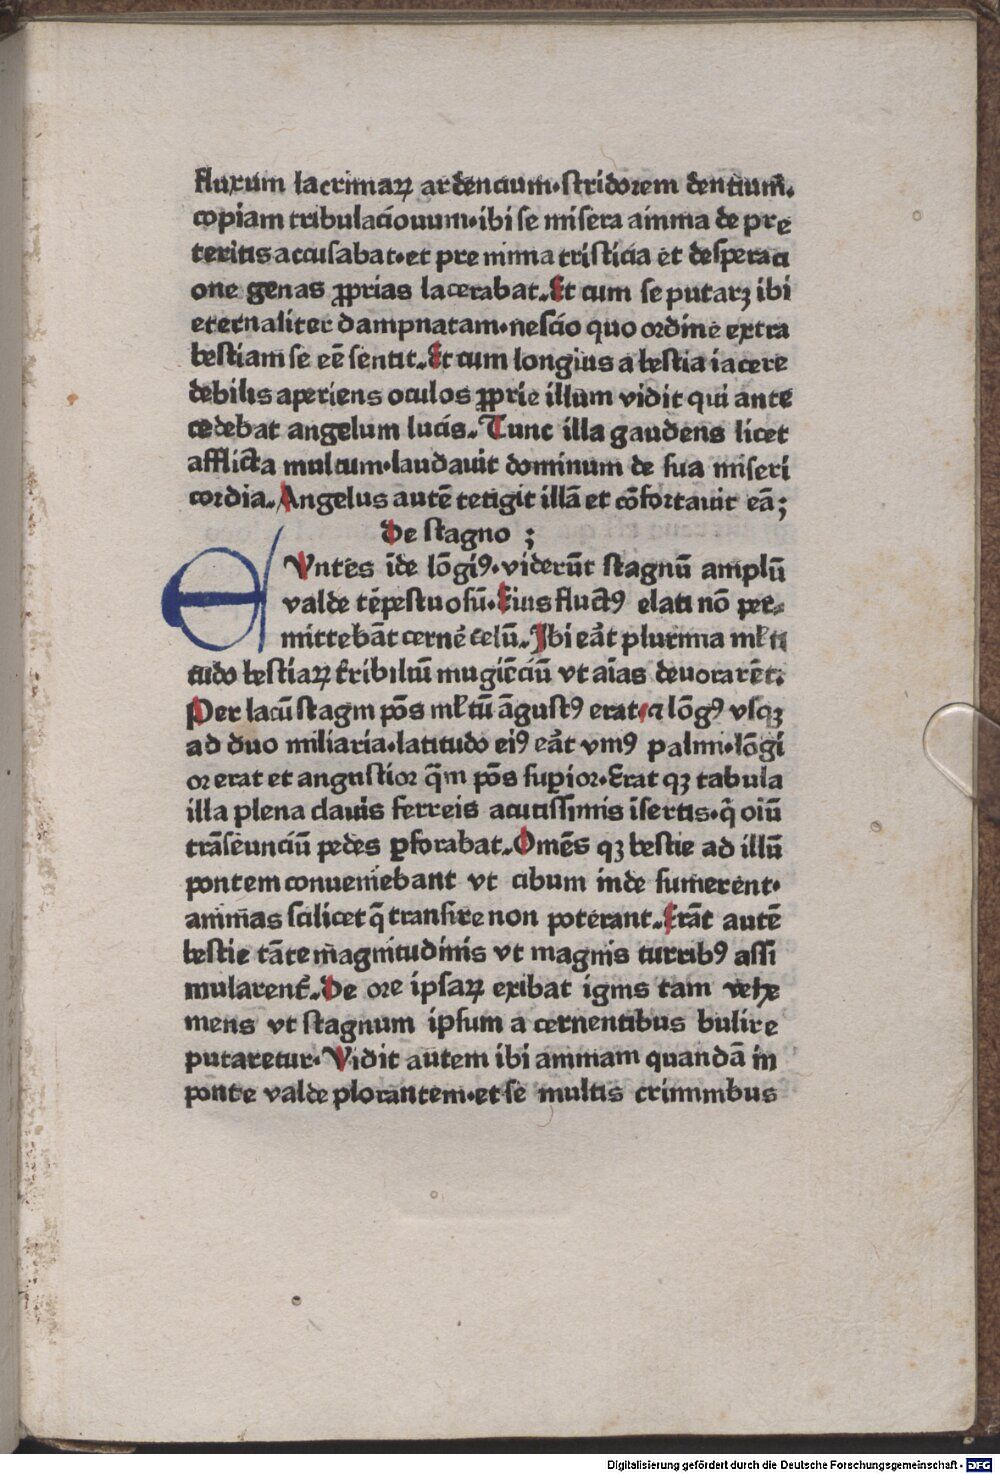 fluxum lacrimaꝝ ardencium·stridorem dentium̄.
copiam tribulaciouum·ibi se misera anima de pre
teritis accusabat·et pre nimia tristicia et desperaci
one genas ꝓprias lacerabat. Et cum se putarꝫ ibi
eternaliter dampnatam·nescio quo ordine extra
bestiam se eē sentit. Et cum longius a bestia iacere
debilis aperiens oculos ꝓprie illum vidit qui ante
cedebat angelum lucis. Tunc illa gaudens licet
afflicta multum·laudauit dominum de sua miseri
cordia. Angelus autē tetigit illā et cōfortauit eā;
De stagno ;
EVntes īde lōgiꝰ·viderūt stagnū amplū
valde tēpestuosū. Eius fluctꝰ elati nō per-
mittebāt cernē celū. Ibi eāt plurima mł'ti
tudo bestiaꝝ t̄ribiliū mugiēciū vt aīas deuorarēt.
Per lacū stagni pōs mł'tū āgustꝰ erat·cꝰ lōgꝰ vsqꝫ
ad duo miliaria·latitudo eiꝰ eāt vniꝰ palmi·lōgi
or erat et angustior q̄m pōs suꝑior·Erat qꝫ tabula
illa plena clauis ferreis acutissimis īsertis·q̄ oīū
trāseunciū pedes ꝑforabat. Omēs qꝫ bestie ad illū
pontem conueniebant vt cibum inde sumerent·
animas scilicet q̄ transire non poterant. Erāt autē
bestie tāte magnitudinis vt magnis turribꝰ assi
mularent̄. De ore ipsaꝝ exibat ignis tam vehe
mens vt stagnum ipsum a cernentibus bulire
putaretur· Vidit autem ibi animam quandā in
ponte valde plorantem·et se multis criminibus
Digitalisierung gefördert durch die Deutsche Forschungsgemeinschaft - DFG